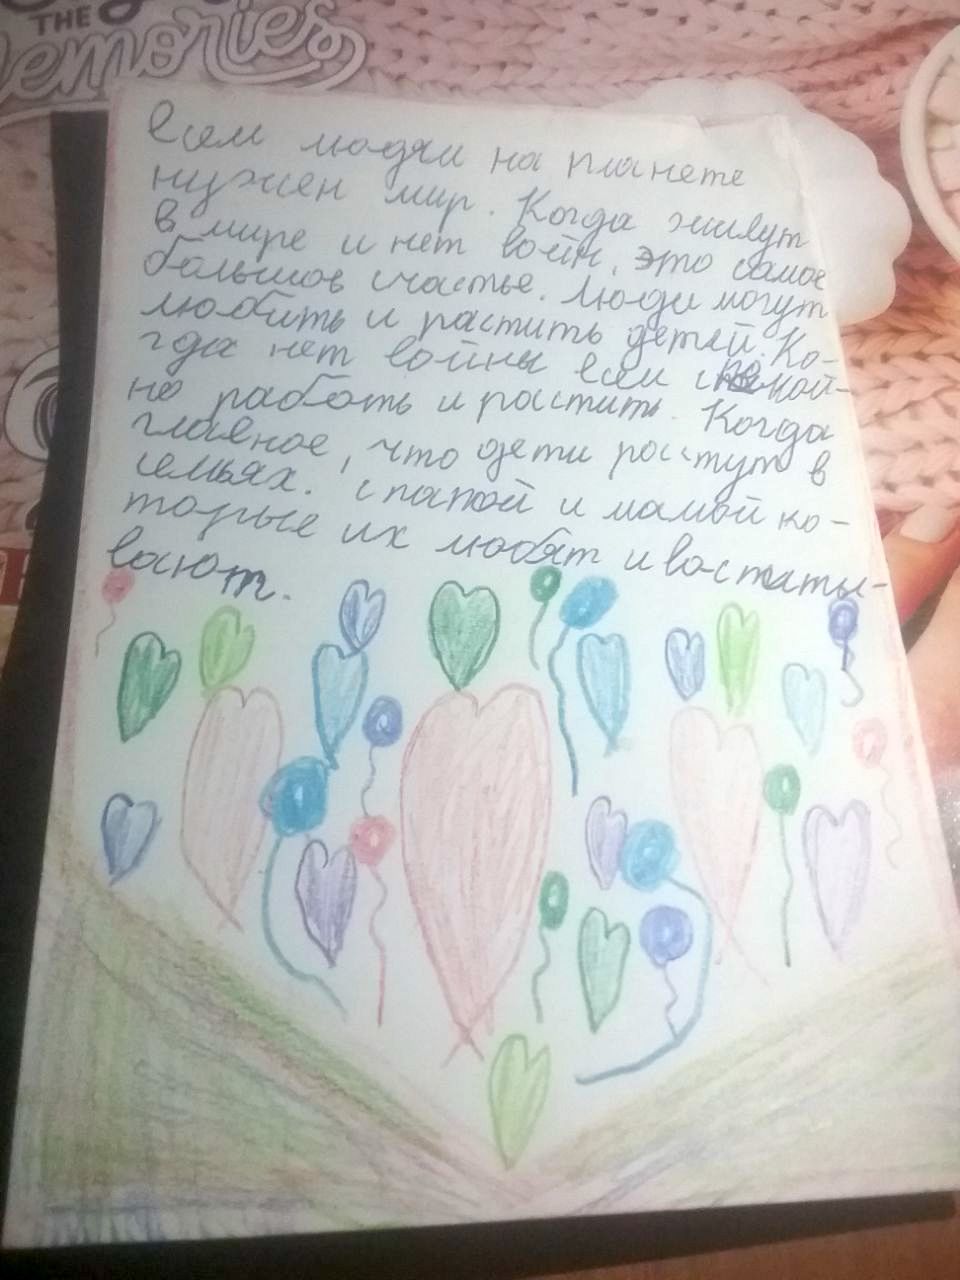 THE
Memories
Всем людям на планете
нужен мир. Когда живут
в мире и нет войн, это самое
большое счастье. Люди могут
любить и растить детей. Ко-
гда нет войны всем спокой-
но работь и растить. Когда
главное, что дети растут в
семьях. с папой и мамой ко-
торые их любят и воспиты-
вают.